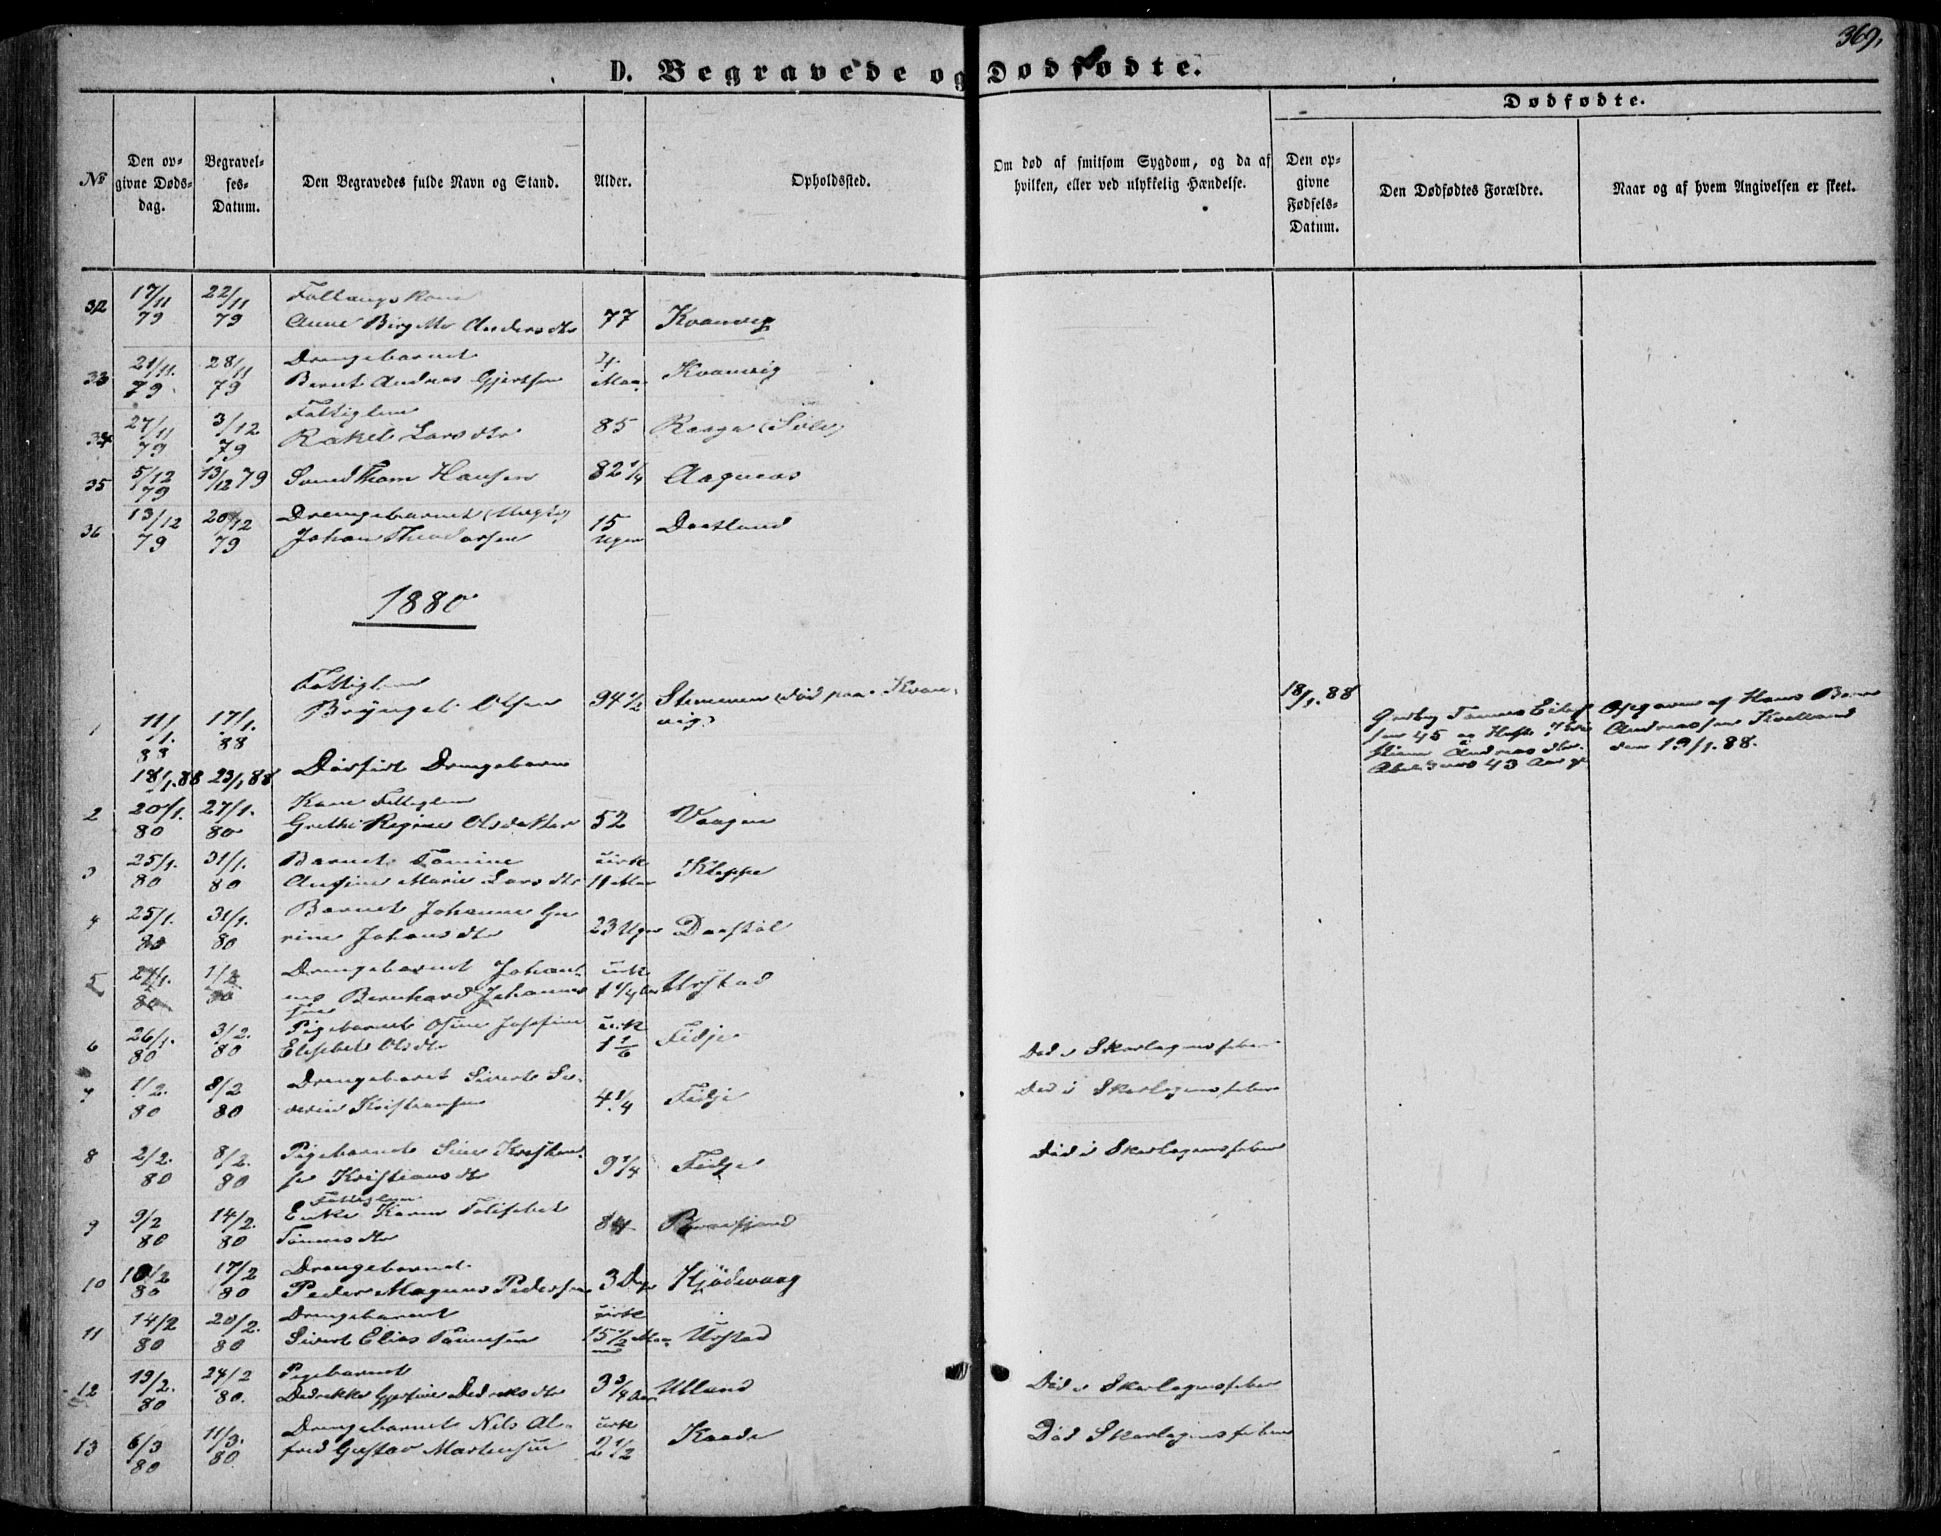 369.
D. Begravede og Dødfødte.
Dødfødte.
No
Den opgivne Dødsdag.
Begravelses-Datum.
Den Begravedes fulde Navn og Stand.
Alder.
Opholdssted.
Om død af smitsom Sygdom, og da af hvilken, eller ved ulykkelig Hændelse.
Den opgivne Fødsels-Datum.
Den Dødfødtes Forældre.
Naar og af hvem Angivelsen er skeet.
32 17/11 79 22/11 79
Anne Birgitte Andersdtr 77 Kvanvig
33 21/11 79 28/11 79 Drengebarnet
Bernt Andreas Gjertsen 4 Maa. Kvanvig
34 27/11 79 3/12 79 Fattiglem
Rakel Larsdtr 85
35 5/12 79 13/12 79 Svend Thom Hansen 82 1/4 Aagnæs
36 13/12 79 20/12 79 Drengebarnet
Johan Theodorsen 15 Uger Dortland
1880
1 11/1. 88 17/1. 88 Fattiglem
Bryngel Olsen 94 1/2 Stemmen (død paa Kvanvig)
18/1. 88 23/1 88 Dødfødt Drengebarn
18/1. 88
Tønnes
45 og
43 Aar
Opgaven af Hans
Andreassen Kvelland
den 19/1. 88.
2 20/1. 80 27/1. 80 Kone Fattiglem
Grethe Regine Olsdatter 52 Vaagen
3 25/1. 80 31/1. 80 Barnet Tomine
Ansine Marie Larsdtr cirk 11 Mar Kleppe
4 25/1. 80 31/1. 80 Barnet Johanne Gurine Johansdtr 23 Uger Daastøl
5 27/1. 80 1/2 80 Drengebarnet Johannes Bernhard Johannessen cirk 1 1/4 Aar Urstad
6 26/1. 80 3/2. 80 Pigebarnet Osine Josefine
Elisabet Olsdtr cirk 1 1/6 Fidje Død i Skarlagensfeber
7 1/2. 80 8/2 80 Drengebaret Sivert Severin Kristiansen 4 1/4 Fidje Død i Skarlagensfeber
8 2/2. 80 8/2. 80 Pigebarnet Sine
Kristiansdtr 9 1/4 Fidje Død i Skarlagensfeber
9 9/2 80 14/2. 80 Fattiglem
Enke Karen Tolisabet
Tønnesdtr 84
10 10/2 80 17/2 80 Drengebarnet
Peder Magnus Pedersen 3 Dage Kjødvaag
11 14/2 80 20/2. 80 Drengebarnet
Sivert Elias Tønnesen cirk 15 1/2 Maaned Urstad
12 19/2. 80 24/2 80. Pigebarnet
Dedrikke Gjersine Dedriksdtr 3 3/4 Aar Ulland Død i Skarlagensfeber
13 6/3 80 11/3. 80 Drengebarnet Nils Alfred Gustav Martensen cirk 2 1/2 Kaade Død Skarlagensfeber